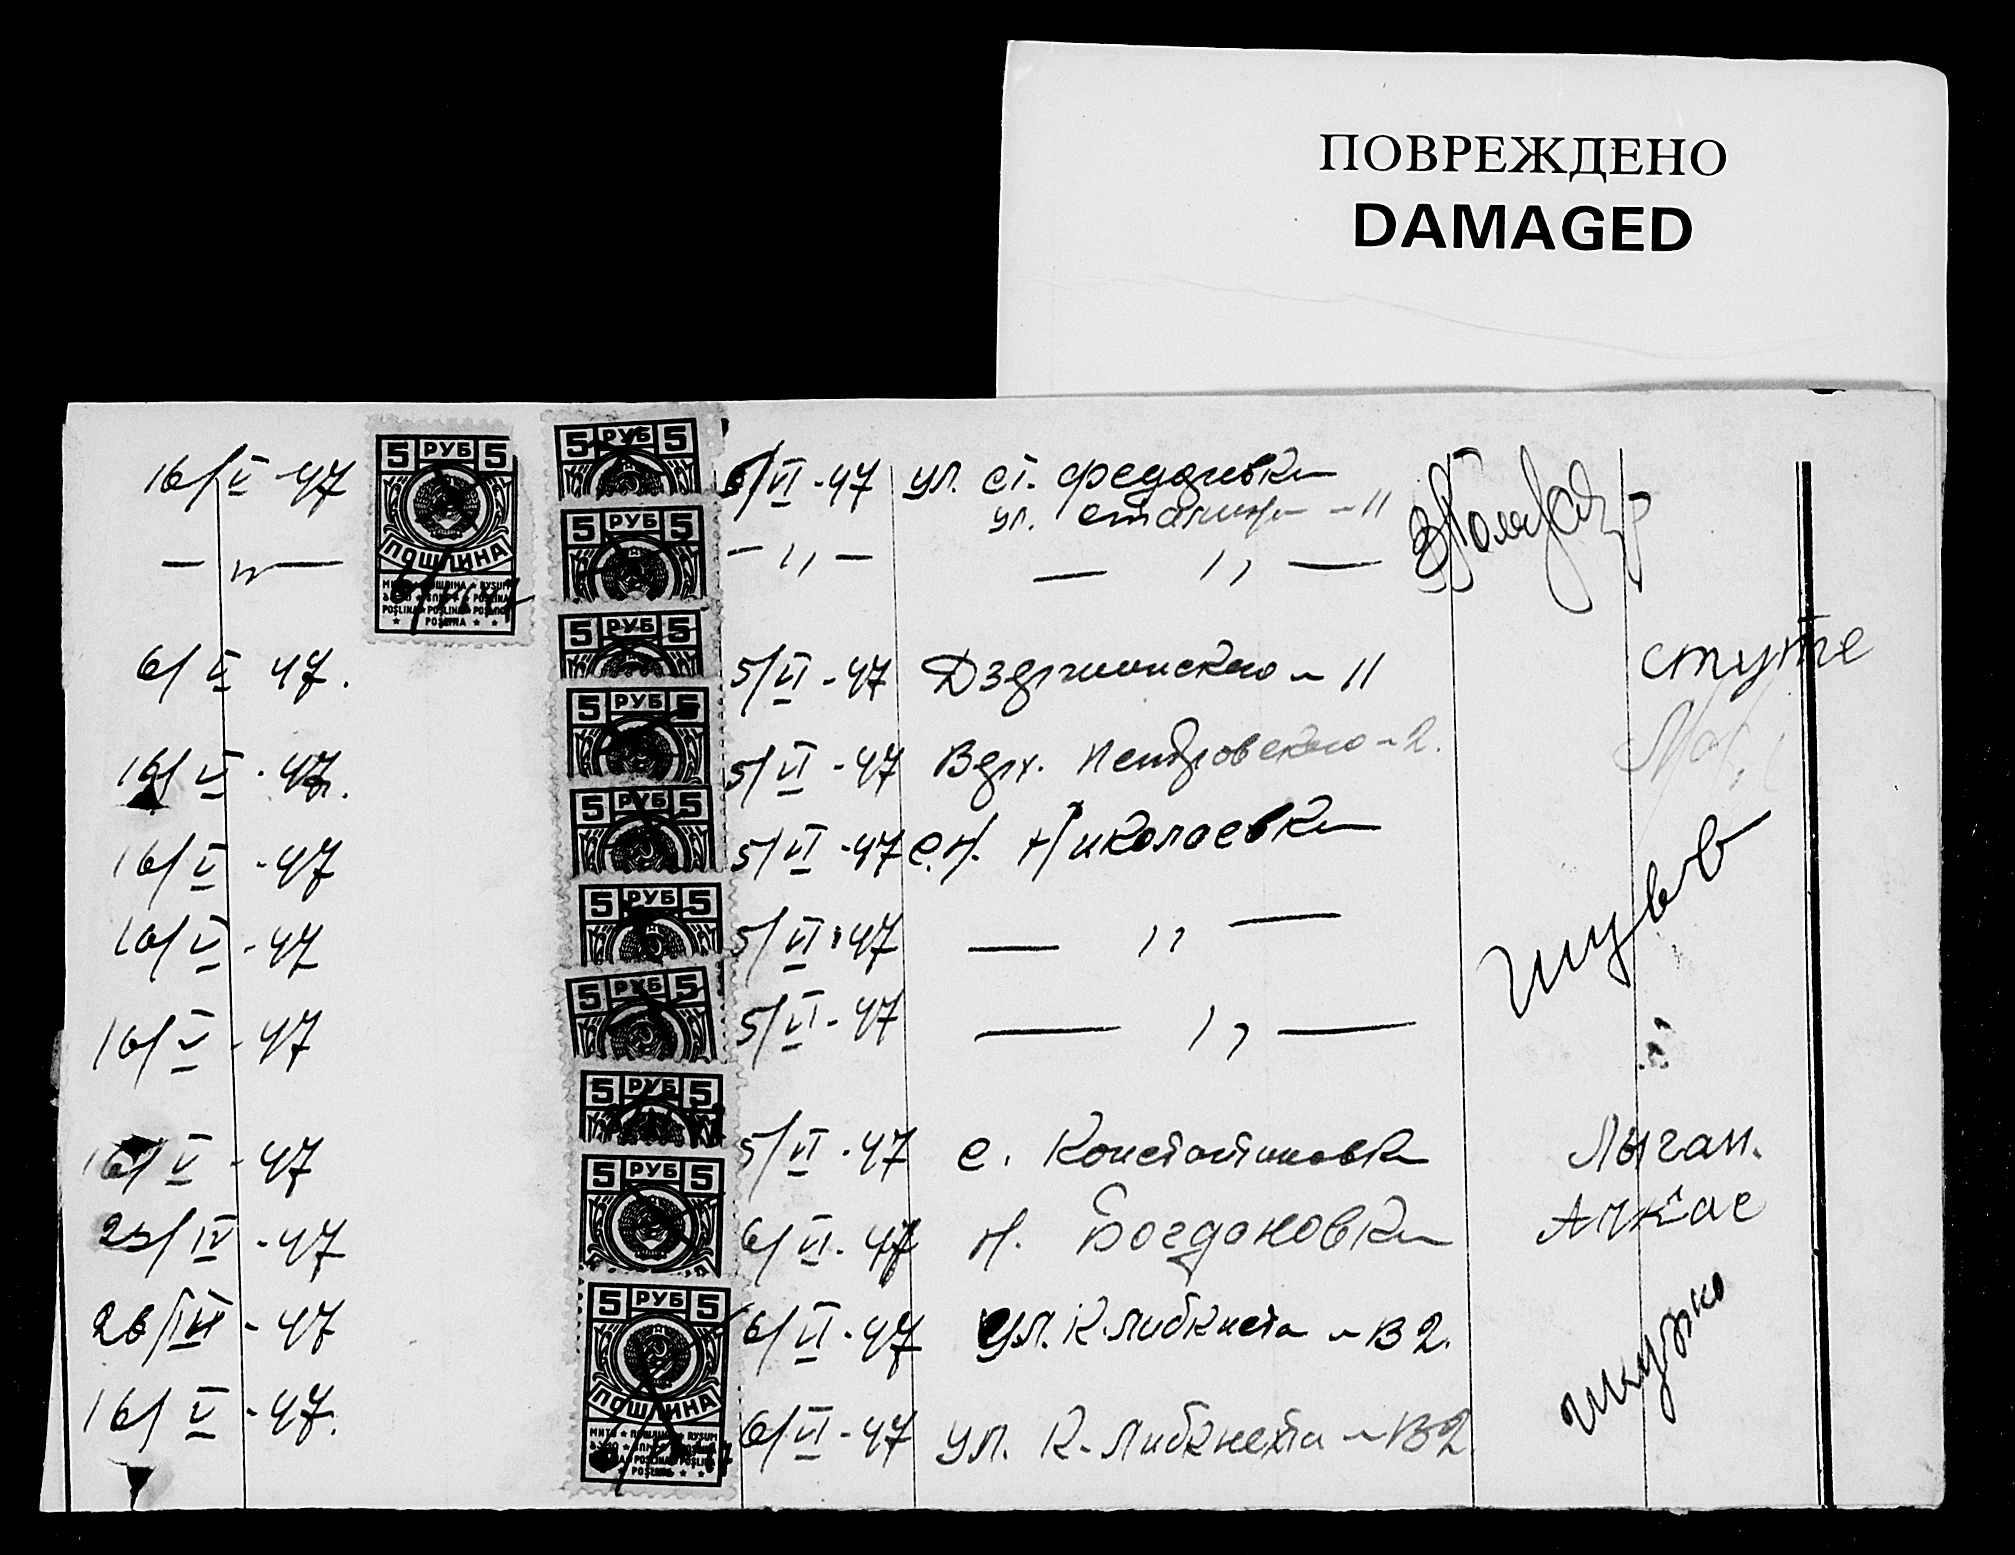 ПОВРЕЖДЕНО
DAMAGED
16/V-47 5 РУБ 5 5 РУБ 5 6/VI-47 ул. ст. Федоровка
ул. Сталина - 11
— " — ПОШЛИНА 5 РУБ 5 — " — — " —
POSLINA ★ POSLINA ★ POSLINA
POSLINA
6/V 47. 5 РУБ 5 5/VI-47 Дзержинского - 11
16/V-47. 5 РУБ 5 5/VI-47 Верх. Петровского - 2.
16/V-47 5 РУБ 5 5/VI-47 с. Н. Николаевка
16/V-47 5 РУБ 5 5/VI-47 — " —
16/V-47 5 РУБ 5 5/VI-47 — " —
16/V-47 5 РУБ 5 5/VI-47 с. Константиновка
5 РУБ 5
23/IV-47 6/VI-47 Н. Богдановка
26/-47 5 РУБ 5 6/VI-47 ул. К. Либкнехта - В 2.
16/V-47. ПОШЛИНА 6/VI-47 ул. К. Либкнехта - В 2